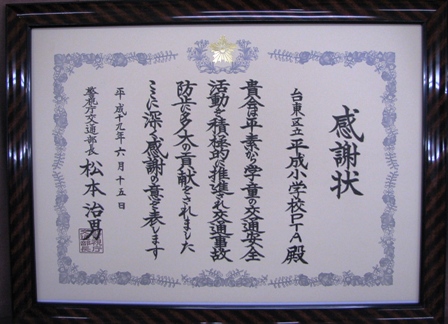 感謝状
台東区立平成小学校PTA殿
貴会は平素から学童の交通安全
活動を積極的に推進され交通事故
防止に多大の貢献をされました
ここに深く感謝の意を表します
平成十九年六月十五日
警視庁交通部長 松本治男